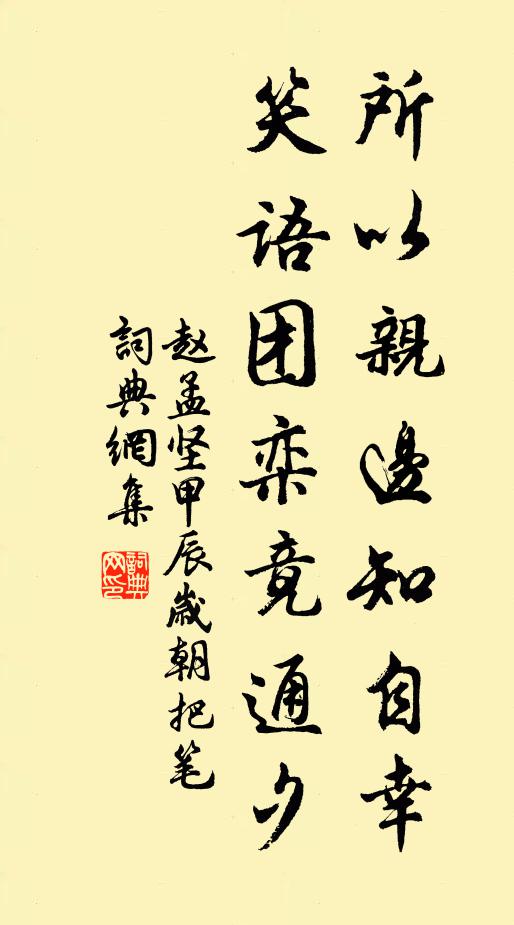 所以親邊知自幸
笑语团栾竟通夕
赵孟坚甲辰歲朝把笔
詞典網集
詞典网印